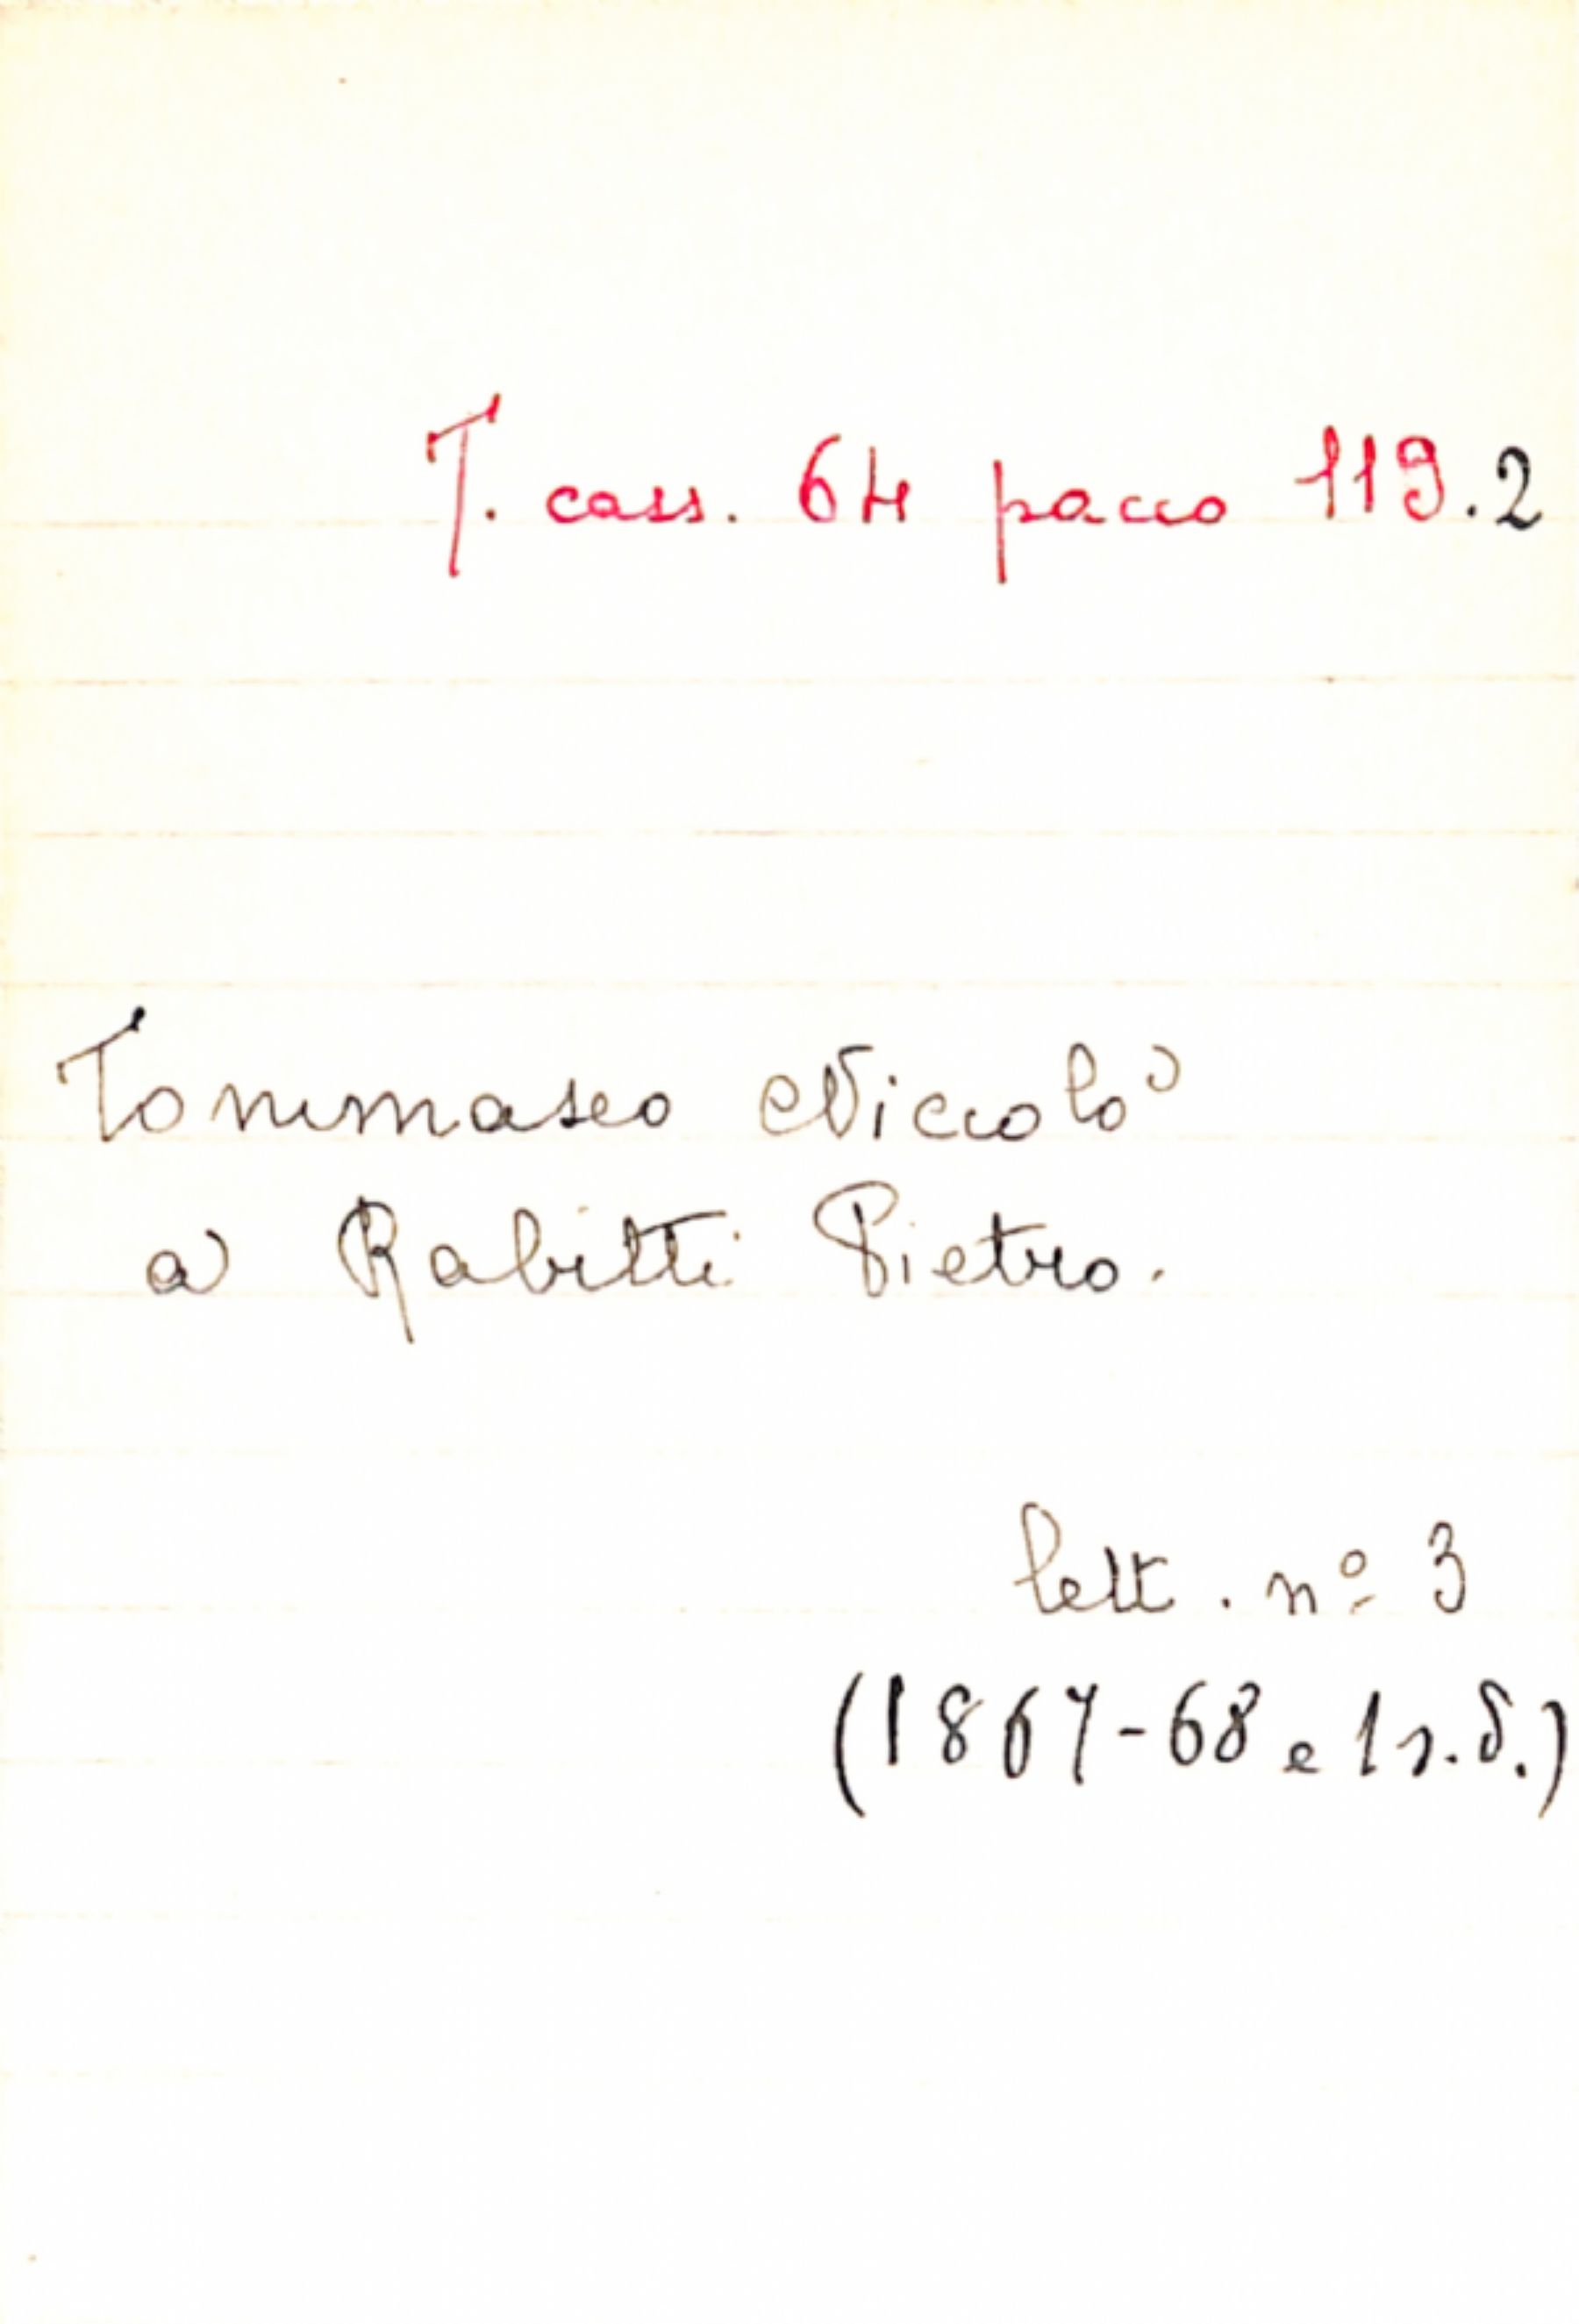 T. cass. 64 pacco 119.2
Tommaseo Niccolò
a Rabitti Pietro.
lett. nº 3
(1867-68 e 1 s.d.)